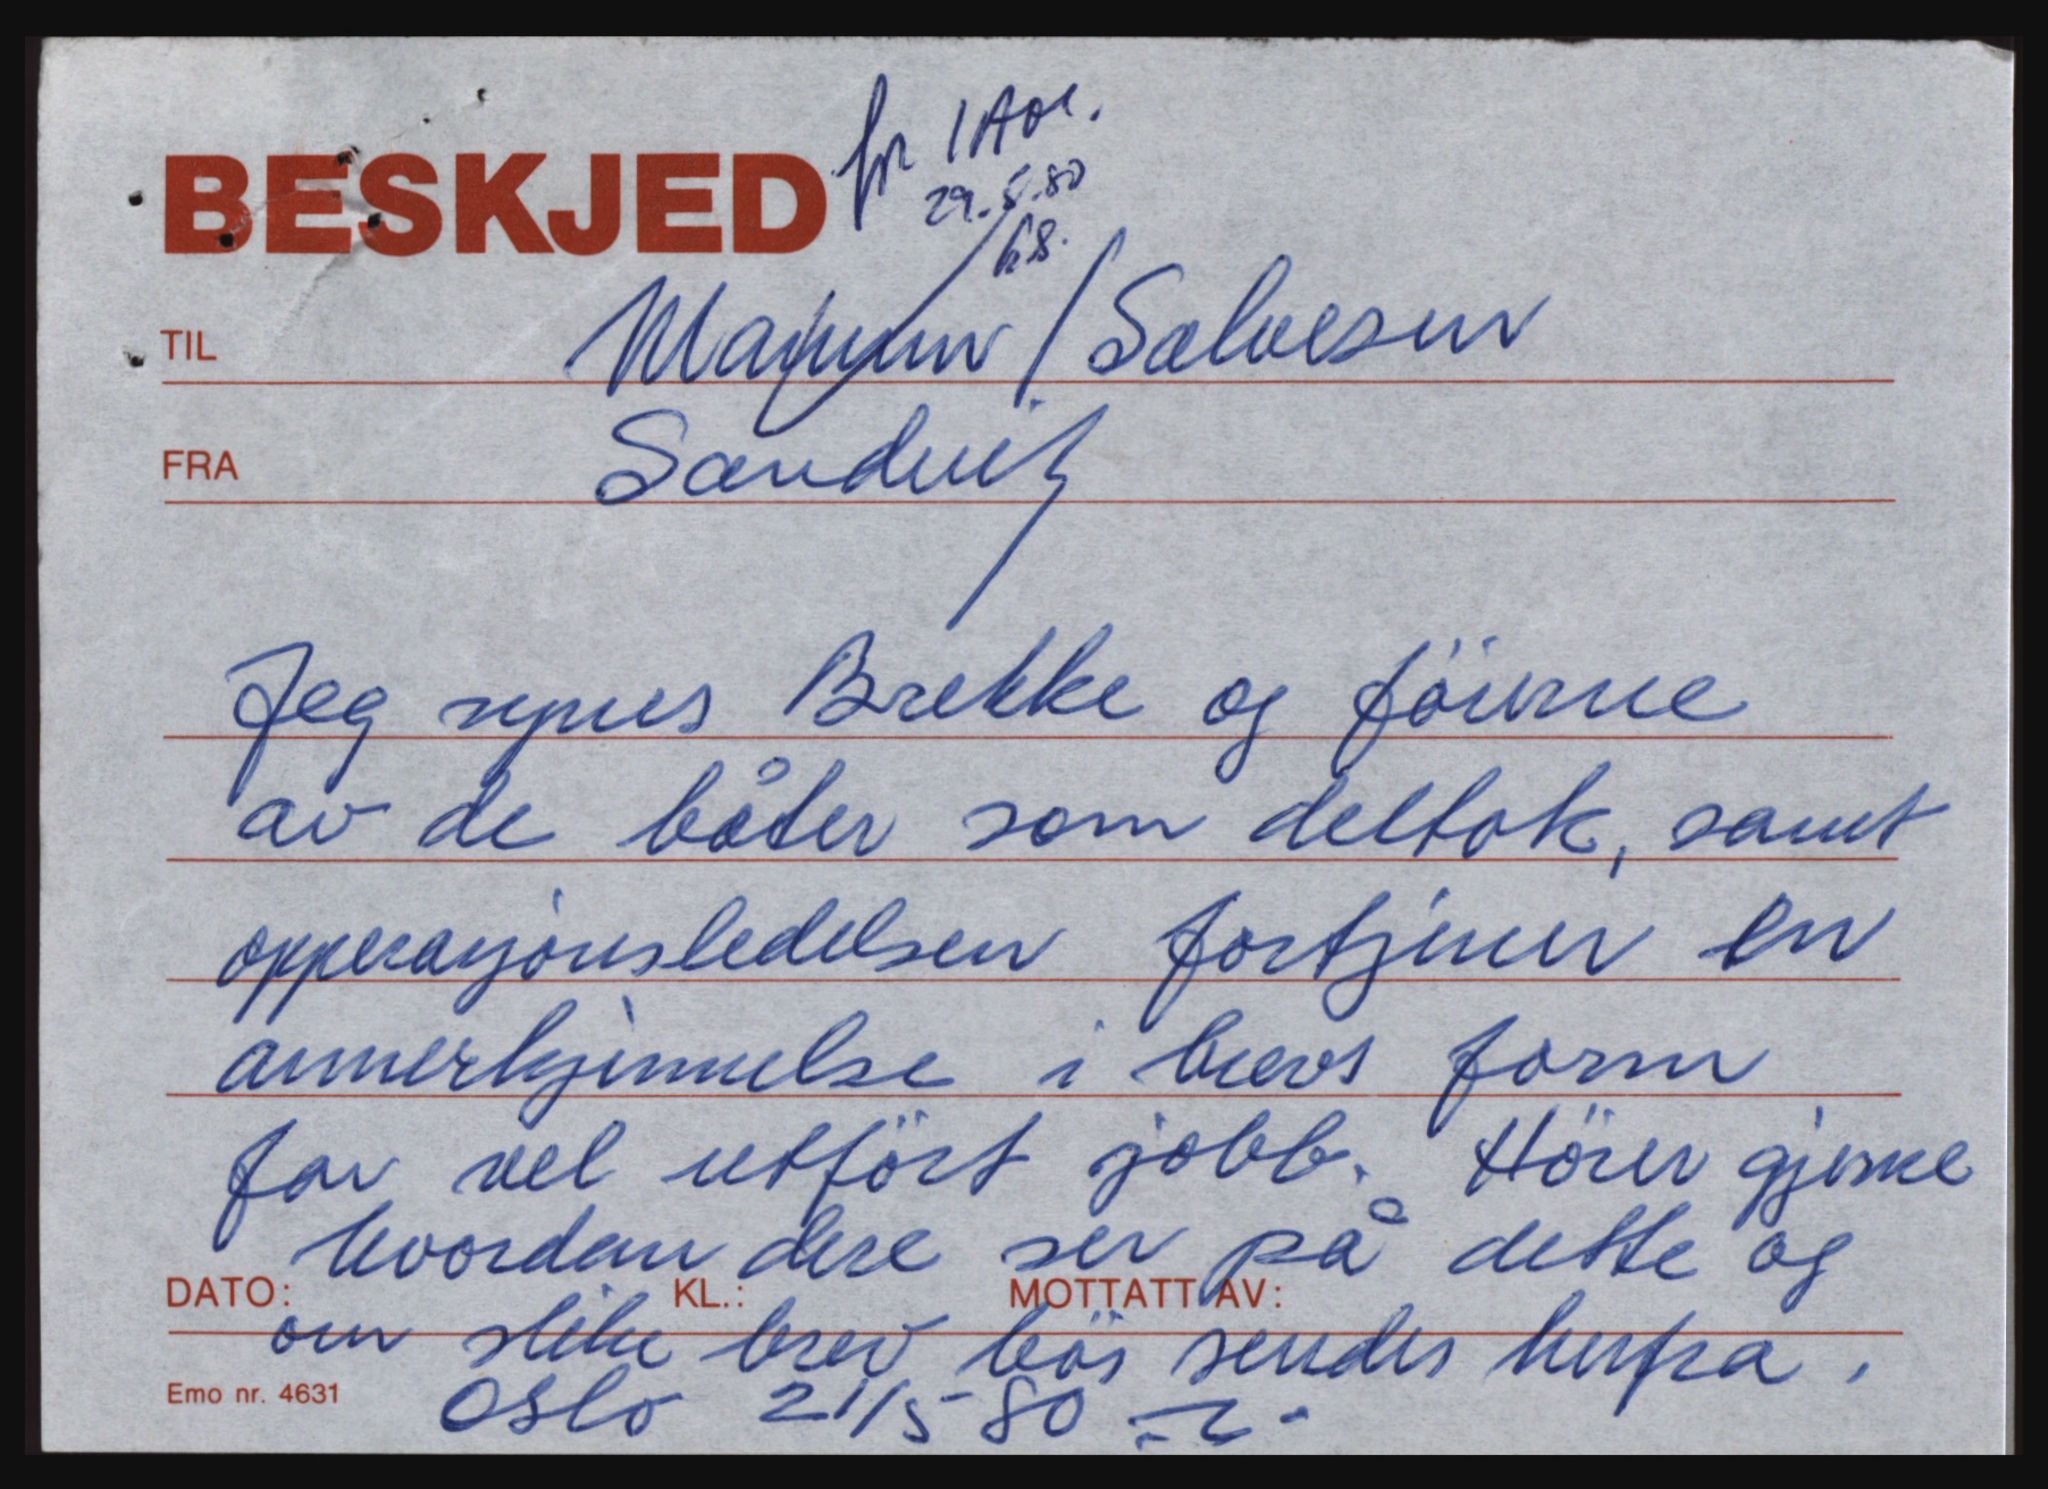 BESKJED
29.5.80
TIL Magnum / Salvesen
FRA Sandvik
Jeg synes Brekke og
av de båter som deltok, samt
opperasjonsledelsen fortjener en
annerkjennelse i brevs form
for vel utført jobb. Hører gjerne
hvordan dere ser på dette og
DATO: KL.: MOTTATT AV:
om slike brev bør sendes herfra.
Emo nr. 4631
Oslo 21/5-80